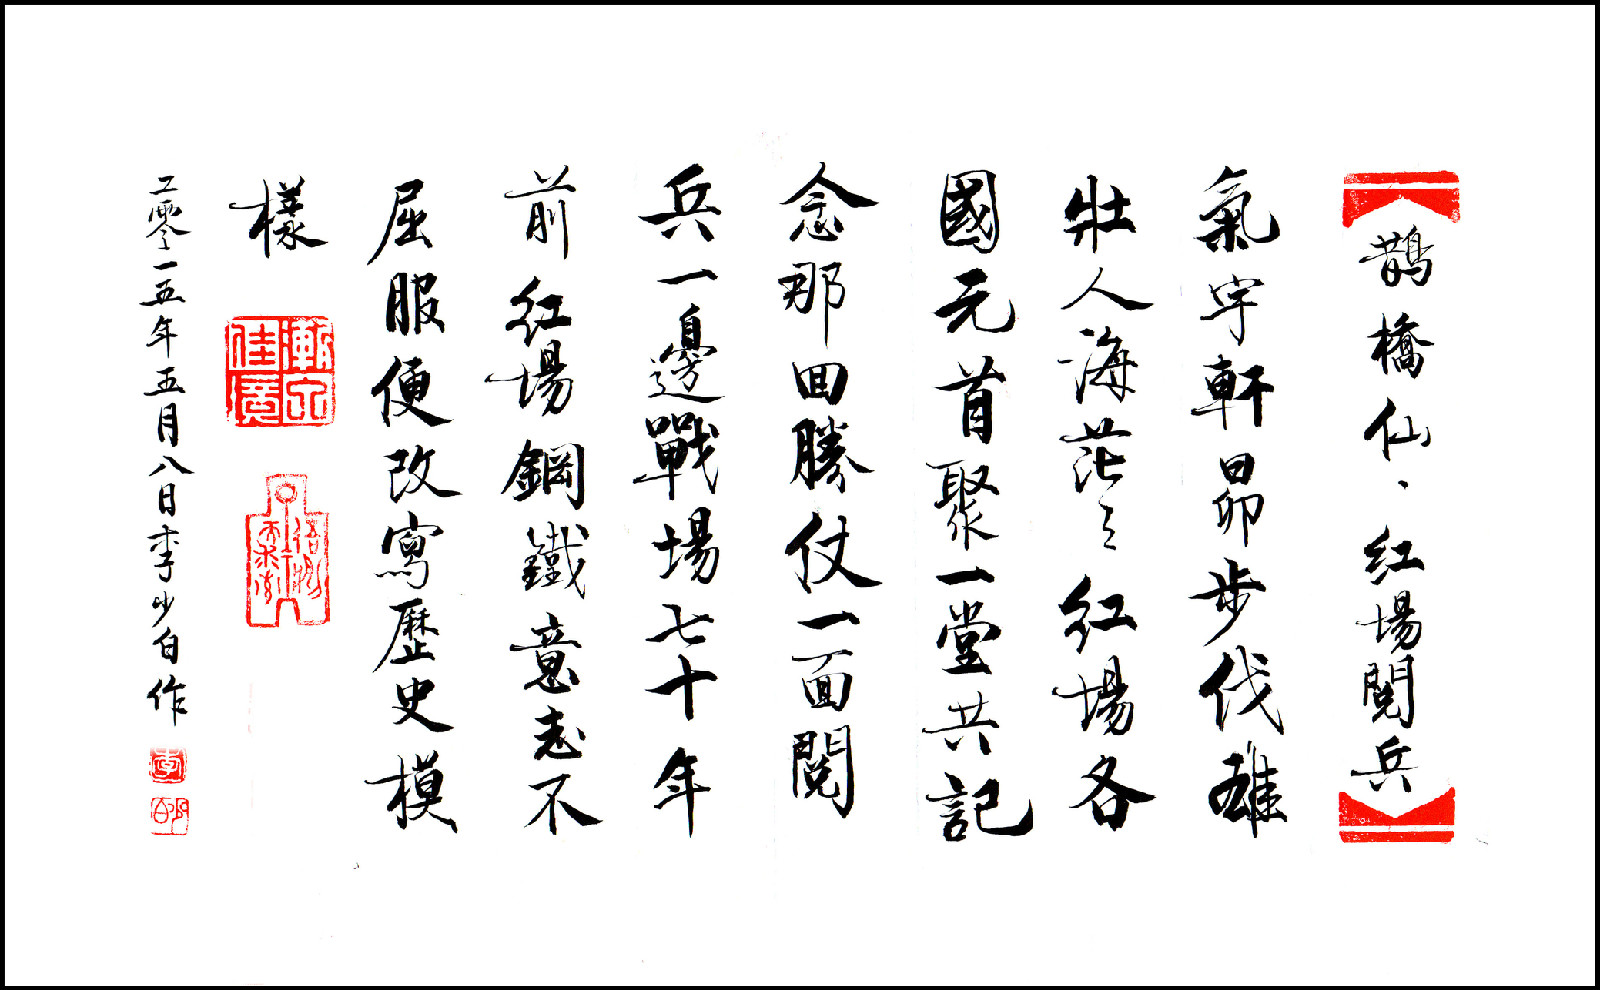 鵲橋仙、红場閱兵
氣宇軒昂步伐雄
壯人海茫々红場各
國元首聚一堂共記
念那回勝仗一面閱
兵一邊戰場七十年
前红場鋼鐵意志不
屈服便改寫歷史模
樣
二零一五年五月八日李少白作